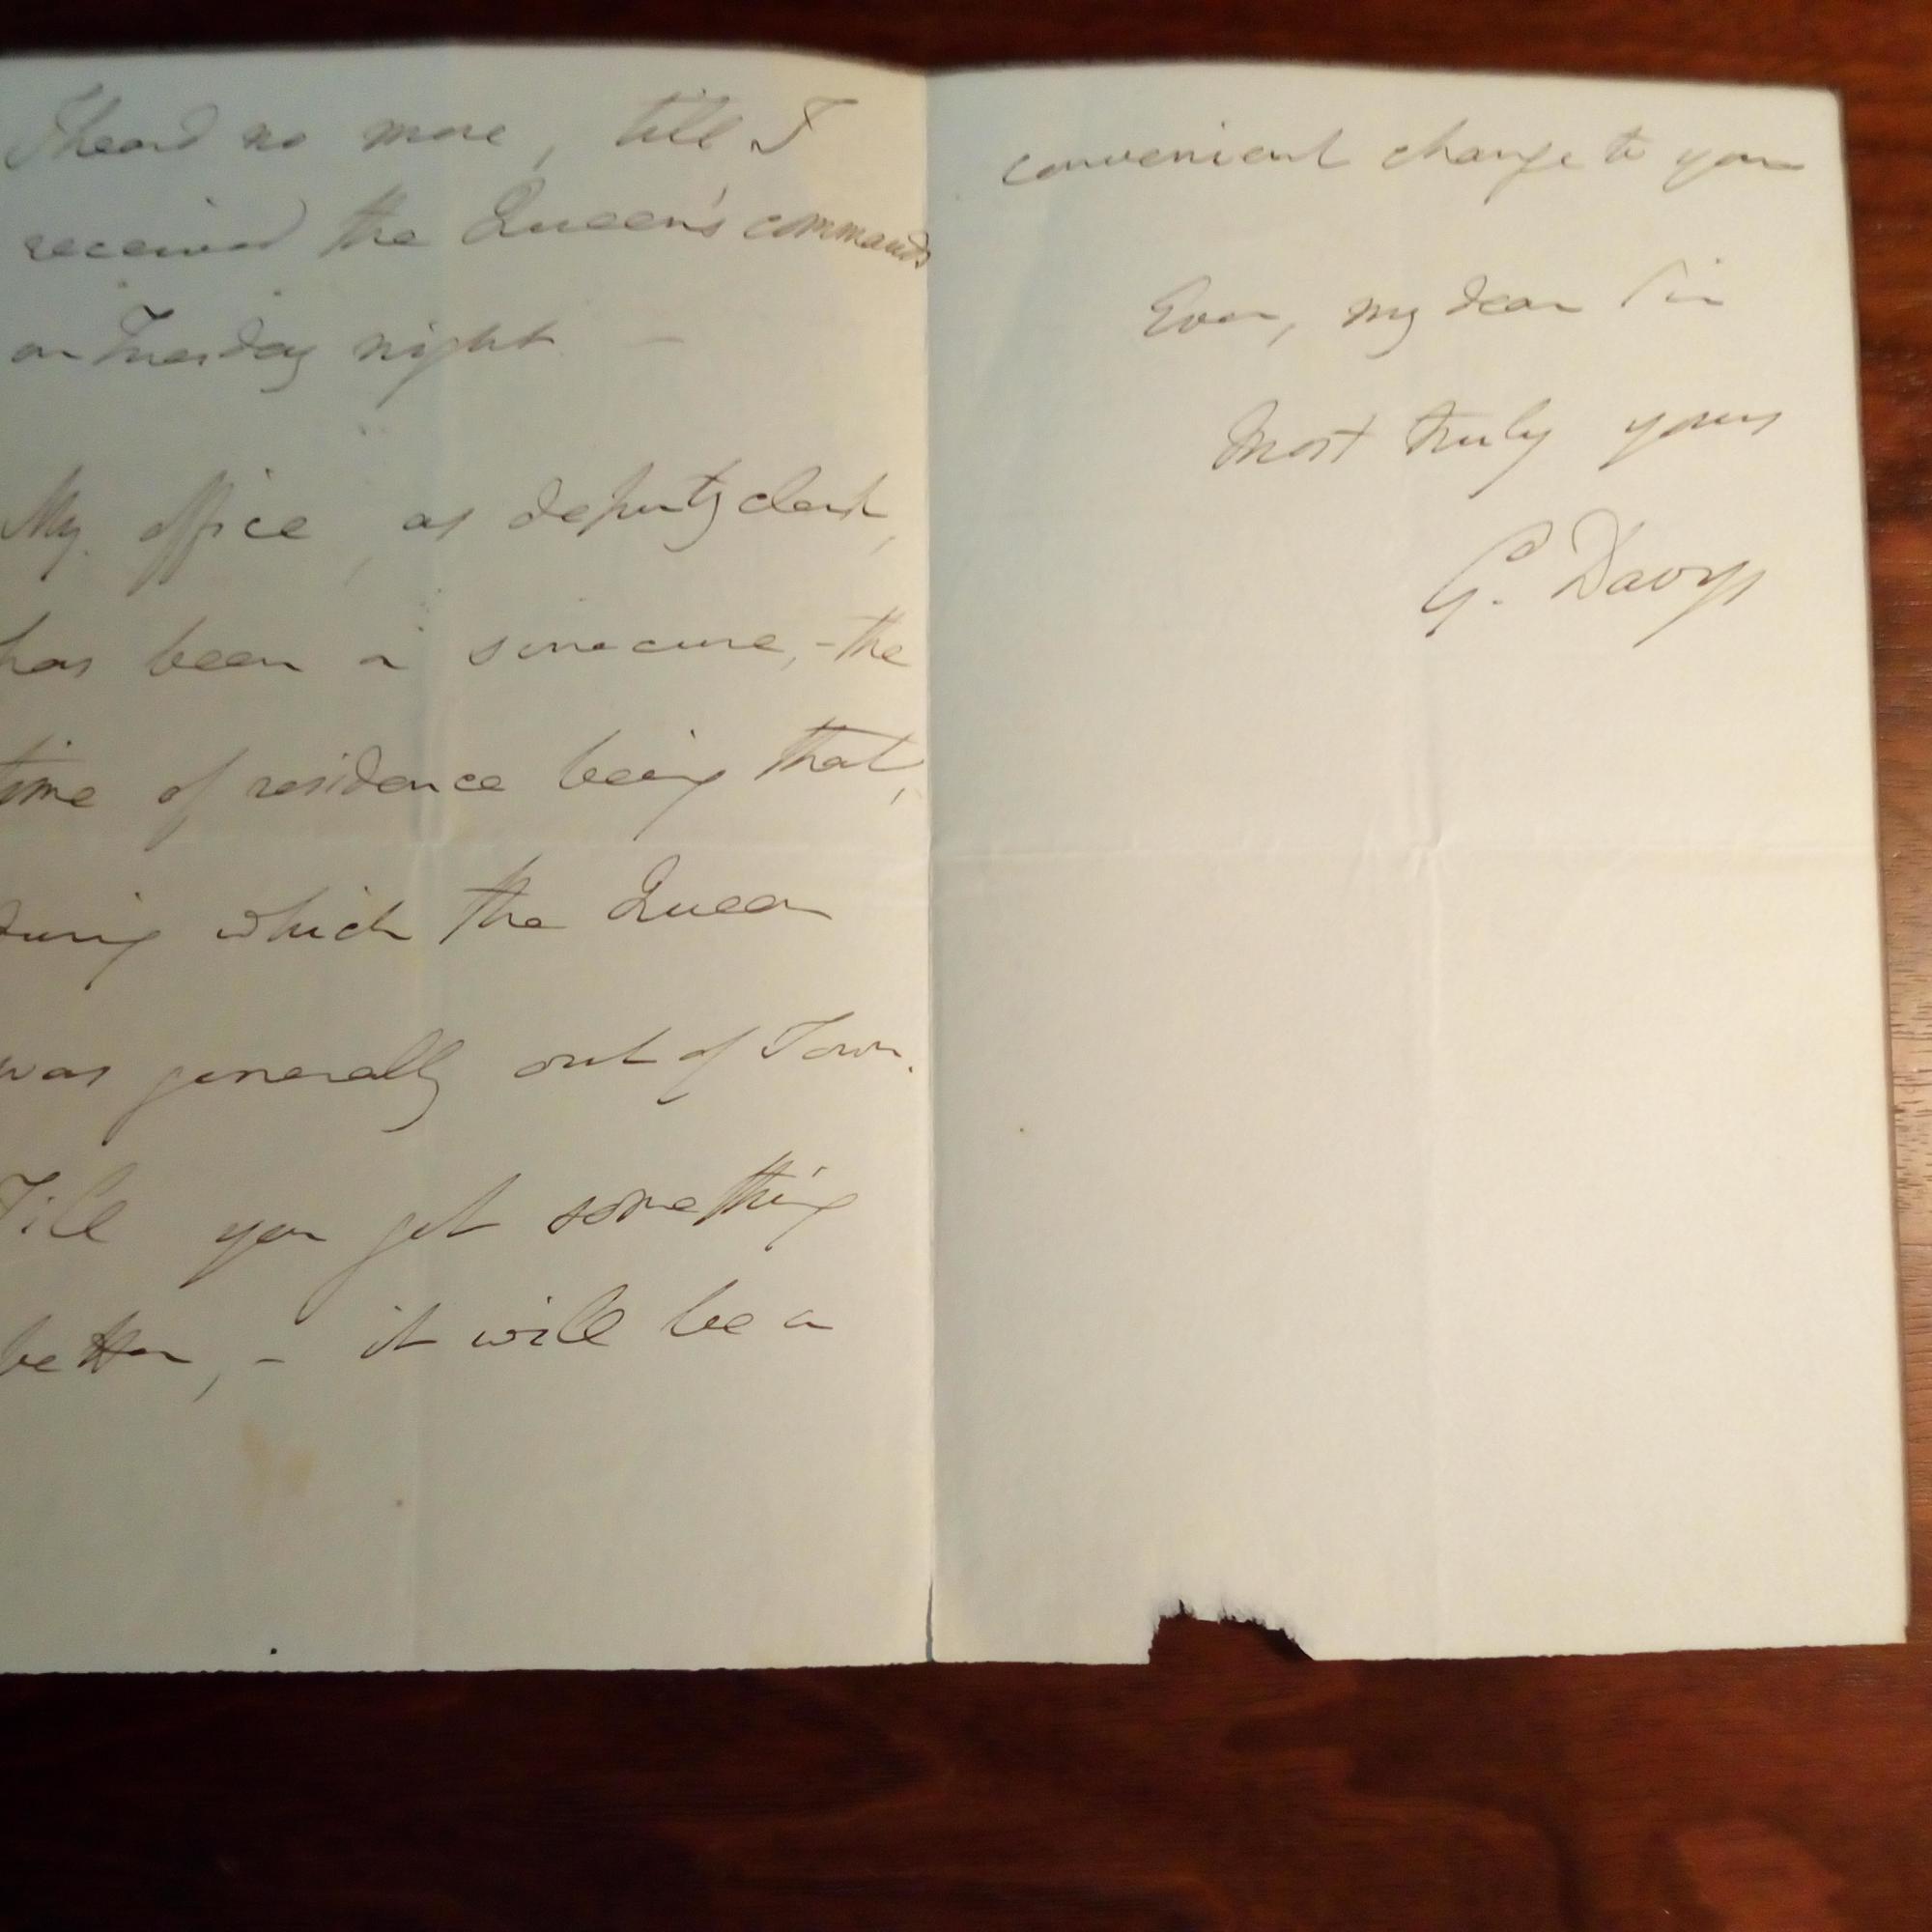 I heard no more, till I
received the Queen's commands
on Tuesday night —
My office, as deputy clerk,
has been a sinecure, - the
time of residence being that,
during which the Queen
was generally out of Town.
Till you get something
better, - it will be a
convenient change to you
Ever, my dear Sir
Most truly yours
G. Davys